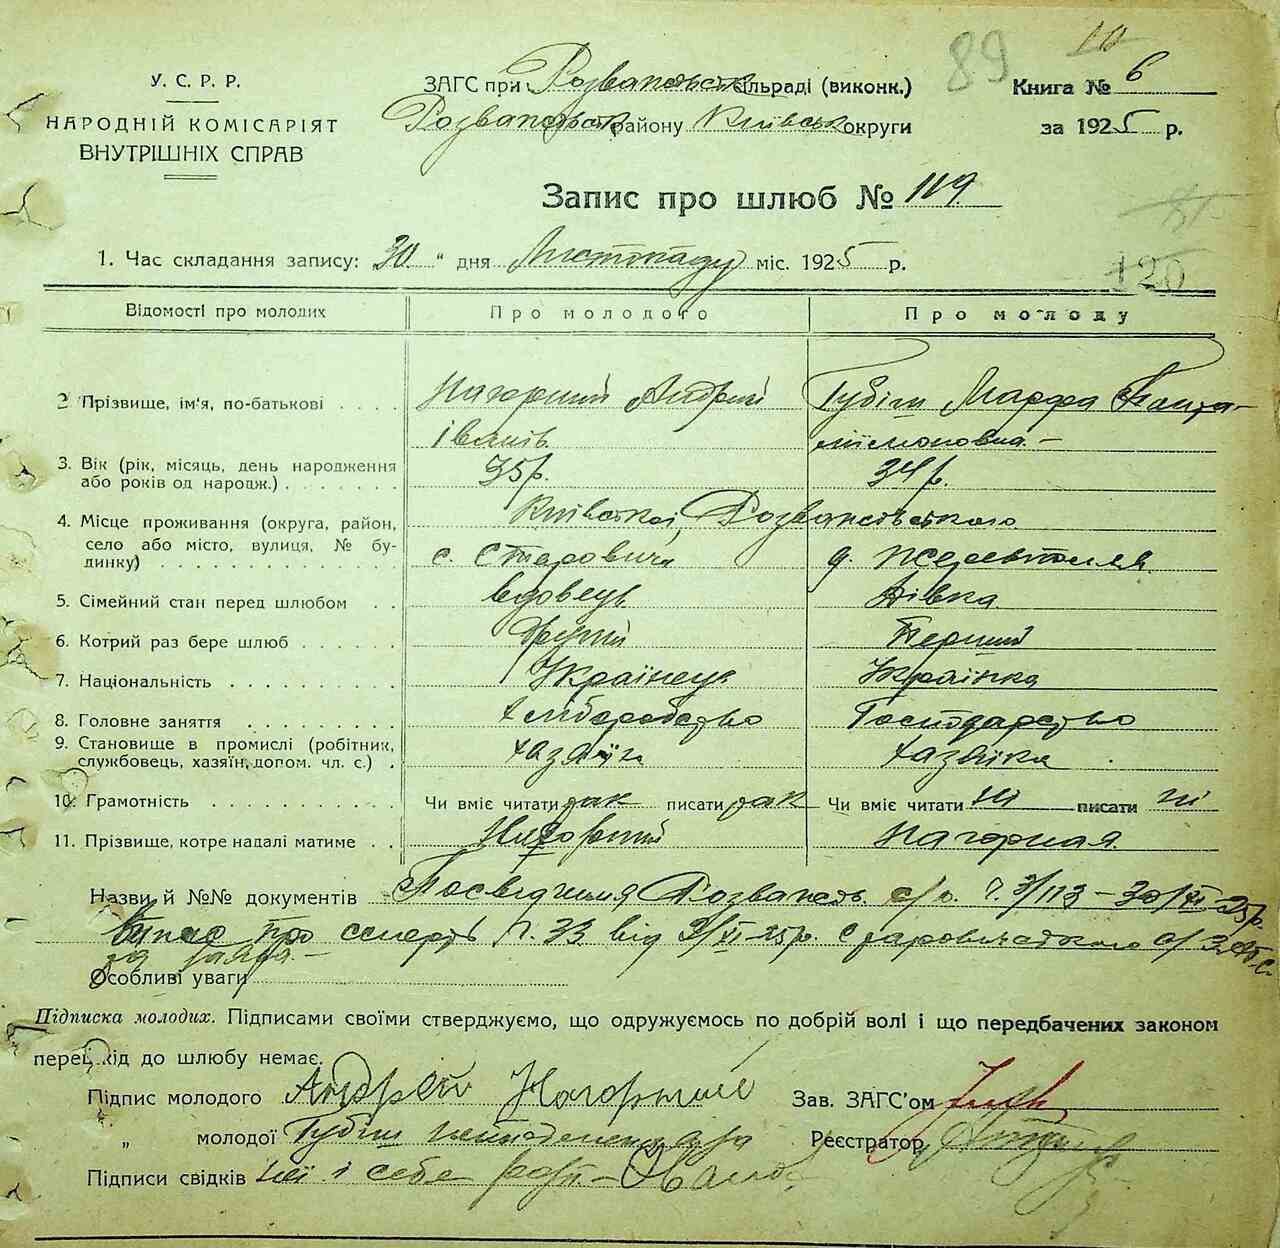 89
10
У. С. Р. Р.
НАРОДНІЙ КОМІСАРІЯТ
ВНУТРІШНІХ СПРАВ
ЗАГС при Розважівськ сільраді (виконк.)
Розважівськ району Київськ округи
Книга № 6
за 1925 р.
Запис про шлюб № 119
81
120
1. Час складання запису: 30 " дня Листопаду міс. 1925 р.
Відомості про молодих Про молодого Про молоду
2 Прізвище, ім'я, по-батькові Нагорний Андрій Іванів Губіш Марфа Панталімоновна
3. Вік (рік, місяць, день народження або років од народж.) 35 р. 34 р.
4. Місце проживання (округа, район, село або місто, вулиця, № будинку) Київської, Розважівського
с. Старовичі д. Жереветпля
5. Сімейний стан перед шлюбом вдовець дівка
6. Котрий раз бере шлюб Другий Перший
7. Національність Українець Українка
8. Головне заняття хліборобство Господарство
9. Становище в промислі (робітник, службовець, хазяїн, допом. чл. с.) хазяїн хазяїка
10. Грамотність Чи вміє читати так писати так Чи вміє читати ні писати ні
11. Прізвище, котре надалі матиме Нагорний Нагорная
Назви й №№ документів Посвідчення Розважів. с/р. ч. 3/113 – 30/XI–25 р.
про смерть ч. 33 від 9/XI–25 р. Старовицького с/ЗАГС
Особливі уваги
Підписка молодих. Підписами своїми стверджуємо, що одружуємось по добрій волі і що передбачених законом
перешкід до шлюбу немає.
Підпис молодого Андрей Нагорный Зав. ЗАГС'ом
„ молодої Губіш неписьменна за Реєстратор
Підписи свідків неї і себе